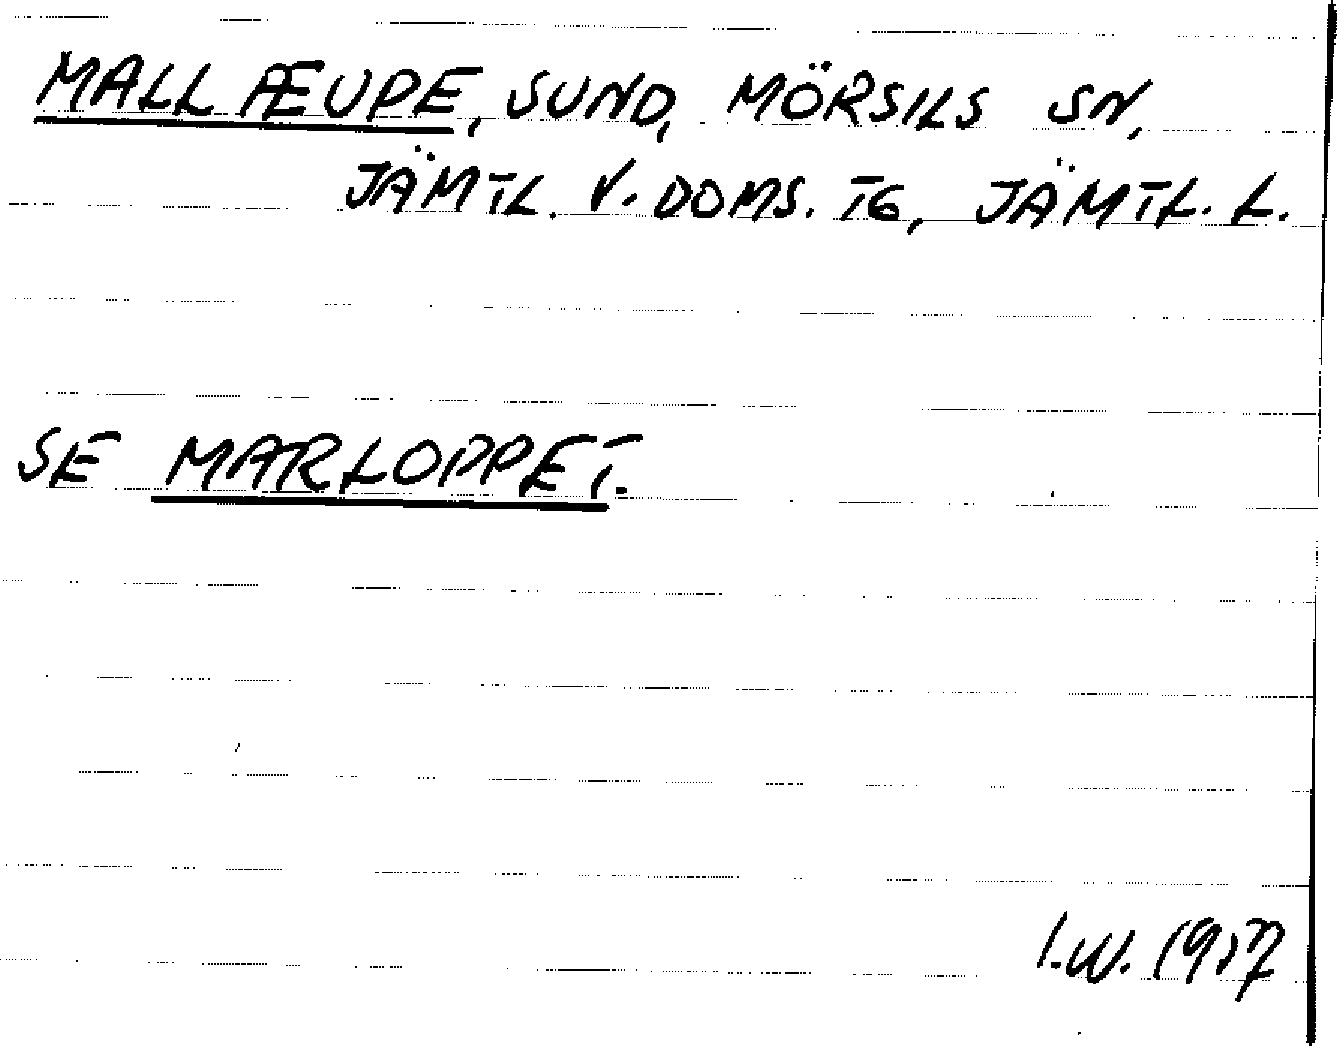 MALL ÆUPE, SUND, MÖRSILS SN,
JÄMTL. V. DOMS. TG, JÄMTL. L.
SE MARLOPPET.
I.W. 1957